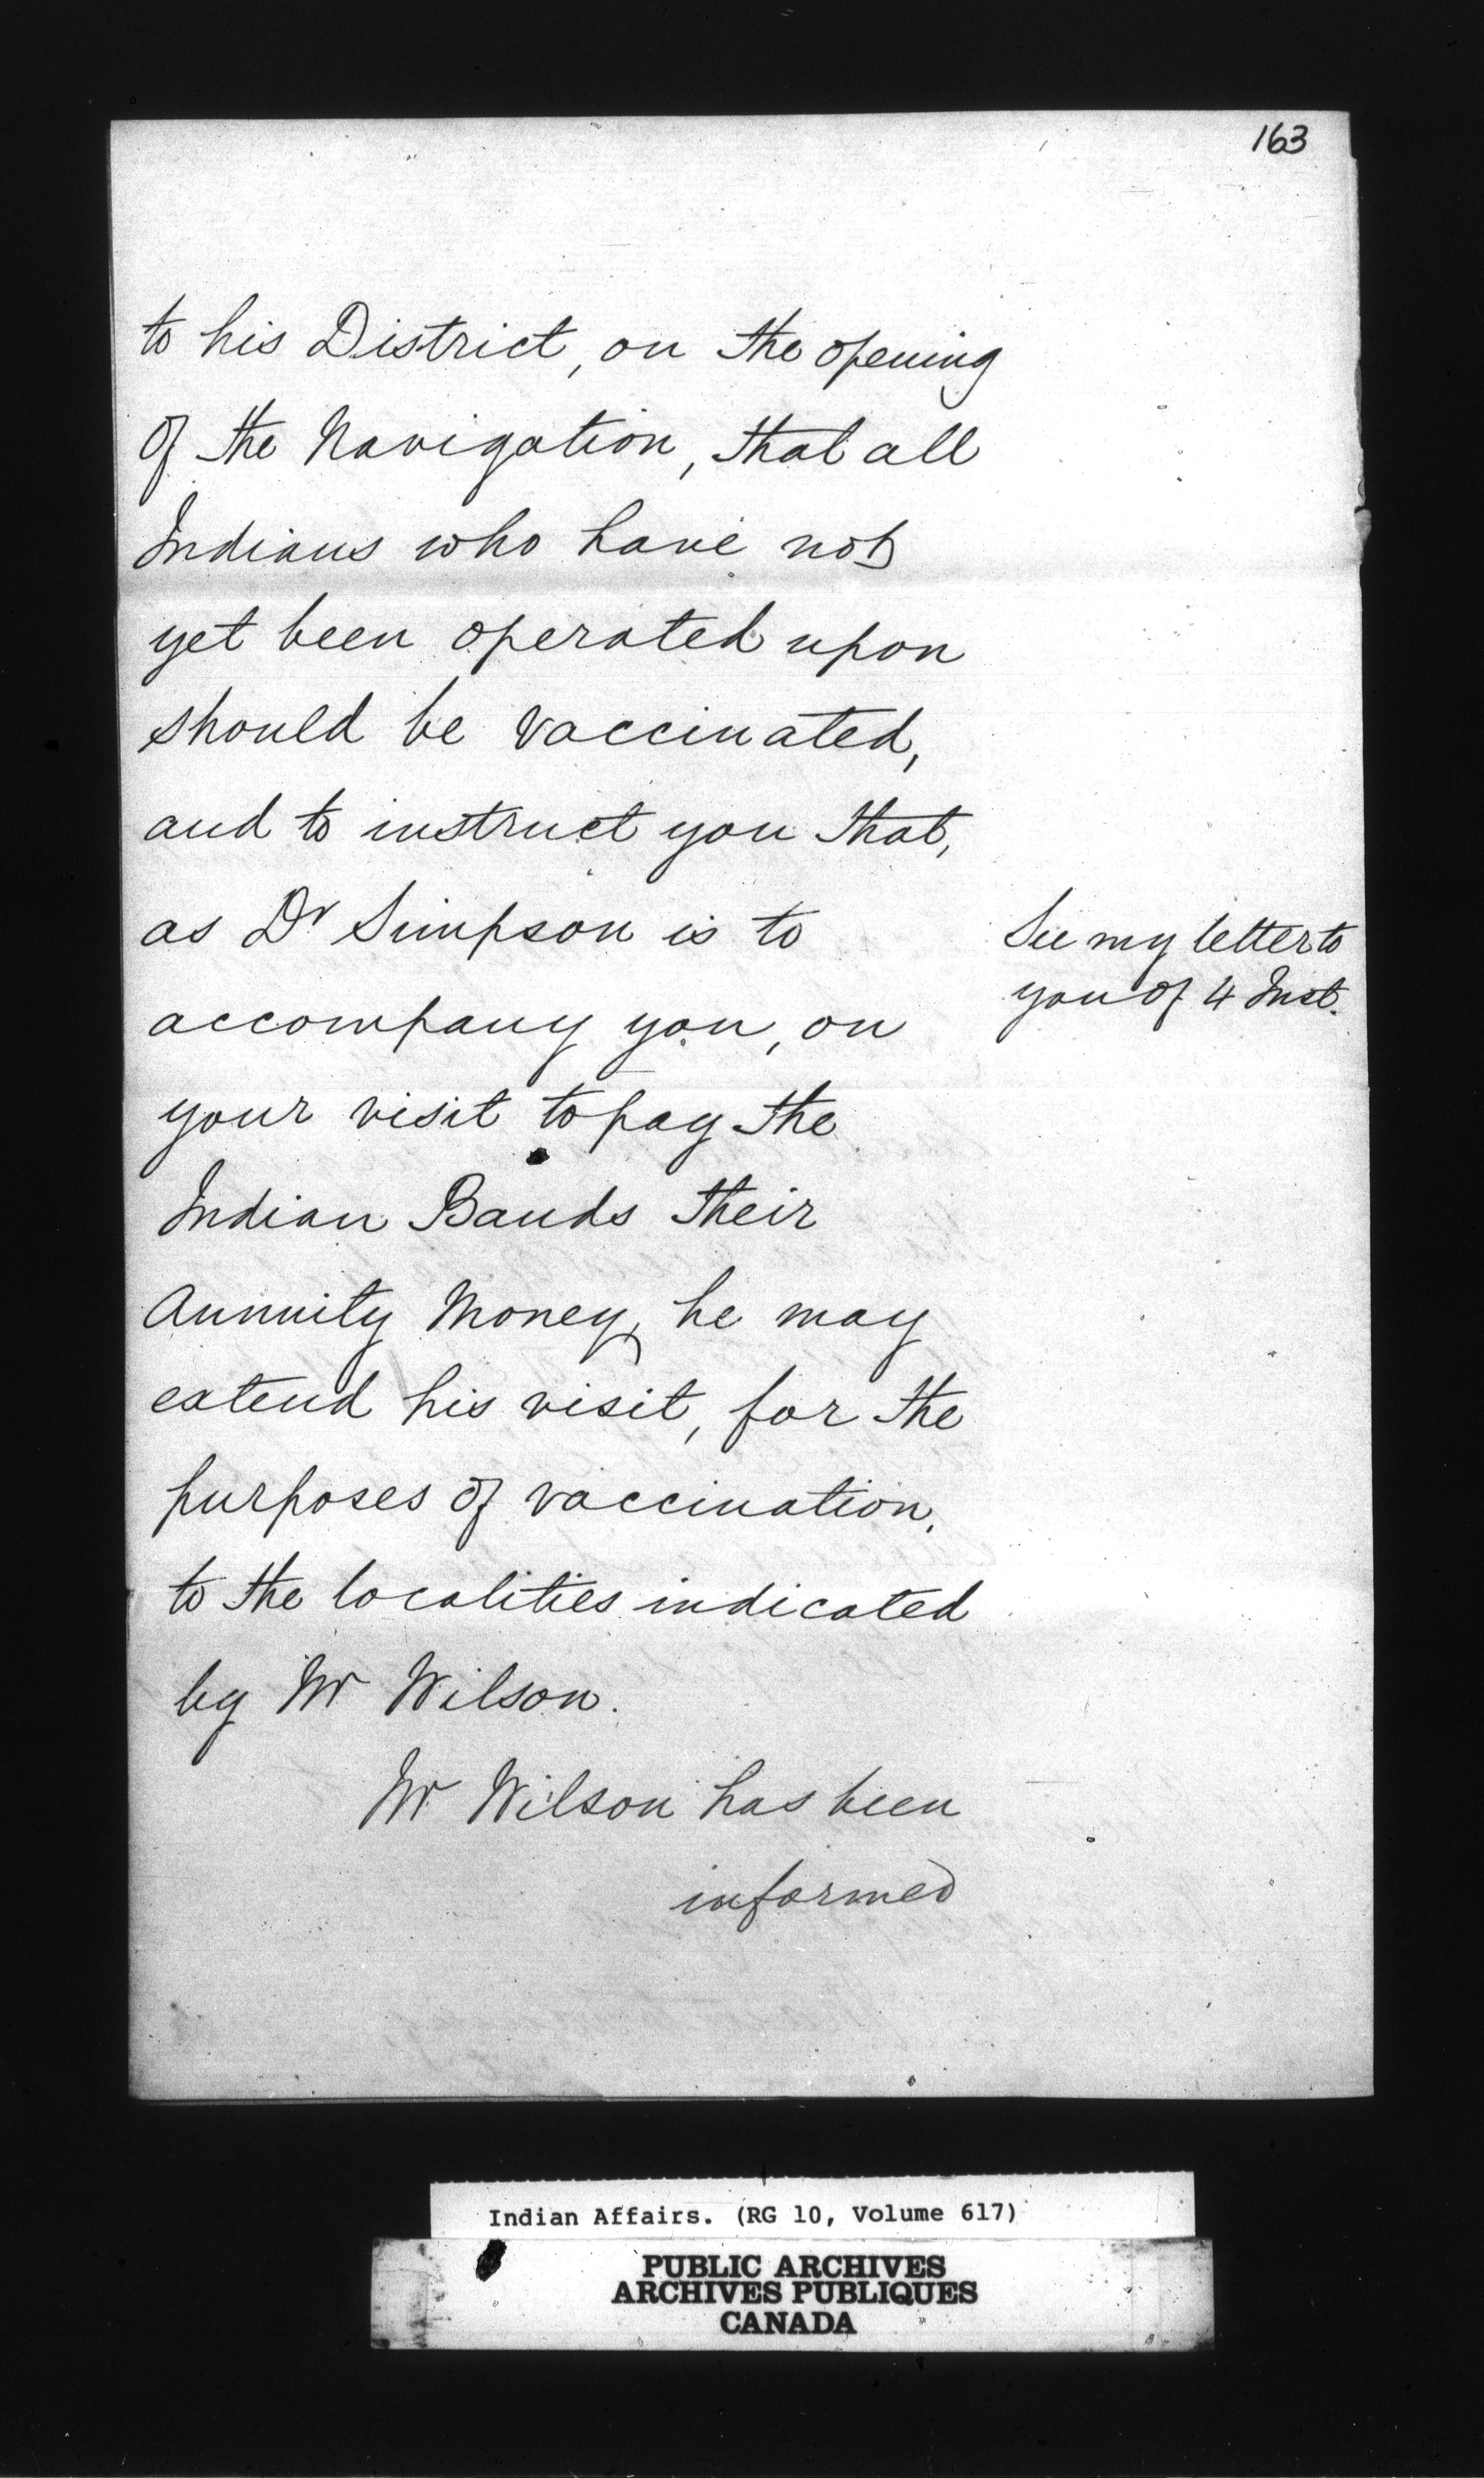 163
to his District, on the opening
of the Navigation, that all
Indians who have not
yet been operated upon
should be vaccinated,
and to instruct you that,
as Dr Simpson is to
See my letter to
you of 4 Inst.
accompany you, on
your visit to pay the
Indian Bands their
Annuity Money, he may
extend his visit, for the
purposes of vaccination,
to the localities indicated
by Mr Wilson.
Mr Wilson has been
informed
Indian Affairs. (RG 10, Volume 617)
PUBLIC ARCHIVES
ARCHIVES PUBLIQUES
CANADA